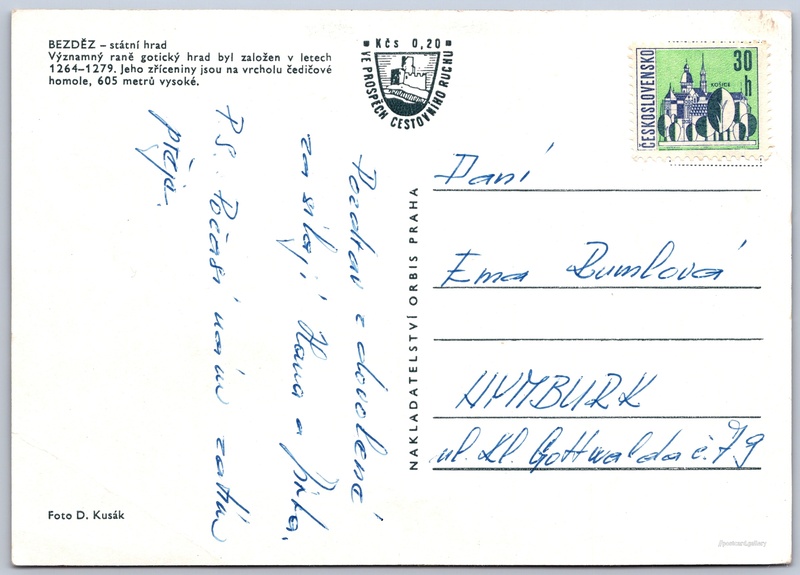 BEZDĚZ – státní hrad
Významný raně gotický hrad byl založen v letech
1264–1279. Jeho zříceniny jsou na vrcholu čedičové
homole, 605 metrů vysoké.
Kčs 0,20
VE PROSPĚCH CESTOVNÍHO RUCHU
ČESKOSLOVENSKO
30 h
KOŠICE
Pozdrav z dovolené
zasílají Hana a Jirka.
P.S. Počasí nám zatím
přeje.
NAKLADATELSTVÍ ORBIS PRAHA
Paní
Ema Rumlová
NYMBURK
ul. Kl. Gottwalda č. 79
Foto D. Kusák
//postcard.gallery